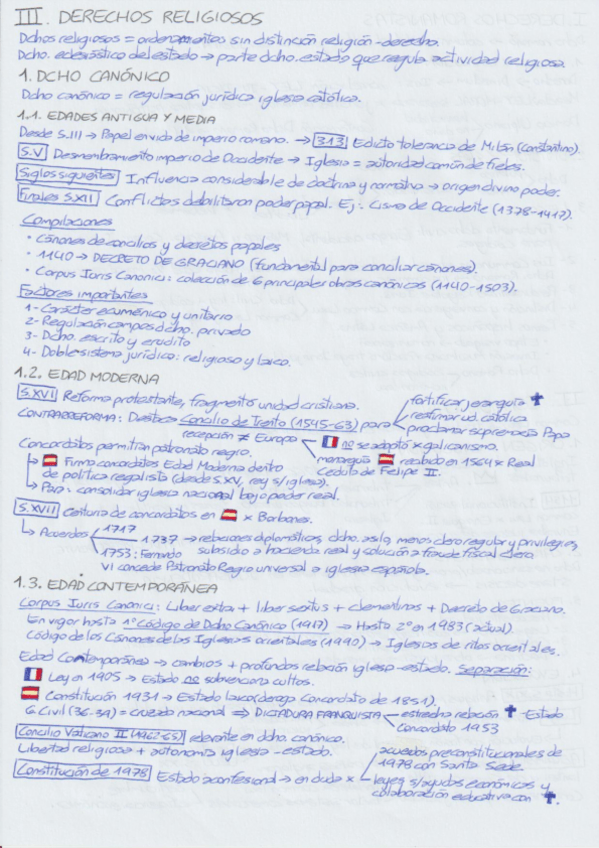 III. DERECHOS RELIGIOSOS
Dchos religiosos = ordenamientos sin distinción religión-derecho.
Dcho. eclesiástico del estado → parte dcho. estado que regula actividad religiosa.
1. DCHO CANÓNICO
Dcho canónico = regulación jurídica iglesia católica.
1.1. EDADES ANTIGUA Y MEDIA
Desde S.III → Papel en vida de imperio romano. → 313 Edicto tolerancia de Milán (Constantino).
S.V Desmembramiento imperio de Occidente → Iglesia = autoridad común de fieles.
Siglos siguientes Influencia considerable de doctrina y normativa → origen divino poder.
Finales S.XII Conflictos debilitaron poder papal. Ej: Cisma de Occidente (1378-1417).
Compilaciones
• Cánones de concilios y decretos papales
• 1140 → DECRETO DE GRACIANO (fundamental para conciliar cánones).
• Corpus Iuris Canonici: colección de 6 principales obras canónicas (1140-1503).
Factores importantes
1- Carácter ecuménico y unitario
2- Regulación campos dcho. privado
3- Dcho. escrito y erudito
4- Doble sistema jurídico: religioso y laico.
1.2. EDAD MODERNA
S.XVI Reforma protestante, fragmentó unidad cristiana.
CONTRARREFORMA: Concilio de Trento (1545-63) para
fortificar jerarquía
reafirmar ud. católica
proclamar supremacía Papa
recepción ≠ Europa
no se adoptó x galicanismo.
monarquía recibido en 1564 x Real
Cédula de Felipe II.
Concordatos permitían patronato regio.
↳ Firma concordatos Edad Moderna dentro
de política regalista (desde S.XV, rey s/iglesia).
↳ Para: consolidar iglesia nacional bajo poder real.
S.XVIII Centuria de concordatos en x Borbones.
↳ Acuerdos
1717
1737 → relaciones diplomáticas, dcho. asilo, menos clero regular y privilegios,
subsidio a hacienda real y solución a fraude fiscal clero.
1753: Fernando
VI concede Patronato Regio universal a iglesia española.
1.3. EDAD CONTEMPORÁNEA
Corpus Iuris Canonici: Liber extra + liber sextus + clementinas + Decreto de Graciano.
En vigor hasta 1º Código de Dcho Canónico (1917) → Hasta 2º en 1983 (actual).
Código de los Cánones de las Iglesias orientales (1990) → Iglesias de ritos orientales.
Edad Contemporánea → cambios + profundos relación iglesia-estado. Separación:
Ley en 1905 → Estado no subvenciona cultos.
Constitución 1931 → Estado laico (deroga Concordato de 1851).
G. Civil (36-39) = cruzada nacional ⇒ DICTADURA FRANQUISTA
estrecha relación - Estado
Concordato 1953
Concilio Vaticano II (1962-65) relevante en dcho. canónico.
Libertad religiosa + autonomía iglesia-estado.
Constitución de 1978 Estado aconfesional → en duda x
acuerdos preconstitucionales de
1978 con Santa Sede
leyes s/ayudas económicas y
colaboración educativa con